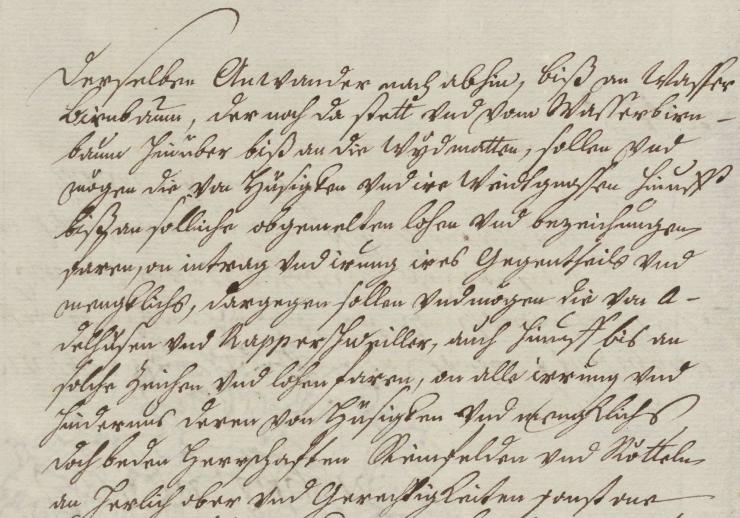 derselben Anwander nach abhin, biß an Wasser
birnbaum, der noch da stett vnd vom Wasserbirn-
baum hinüber biß an die Wydmatten, sollen vnd
mögen die von Häsigken vnd ire Weidtgnossen hinuff
biß an solliche obgemelten lohen vnd bezeichungen
faren, on intrag vnd irung ires Gegentheils vnd
mengklichs, dargegen sollen vnd mögen die von A-
delhusen vnd Rapperschweiller, auch hinuff bis an
solche zeichen vnd lohen faren, on alle irrung vnd
hindernus deren von Häsigken vnd mengklichs,
doch beden Herrschafften Reinfelden vnd Rötteln
an herlich ober vnd Gerechtigkeiten sonst one